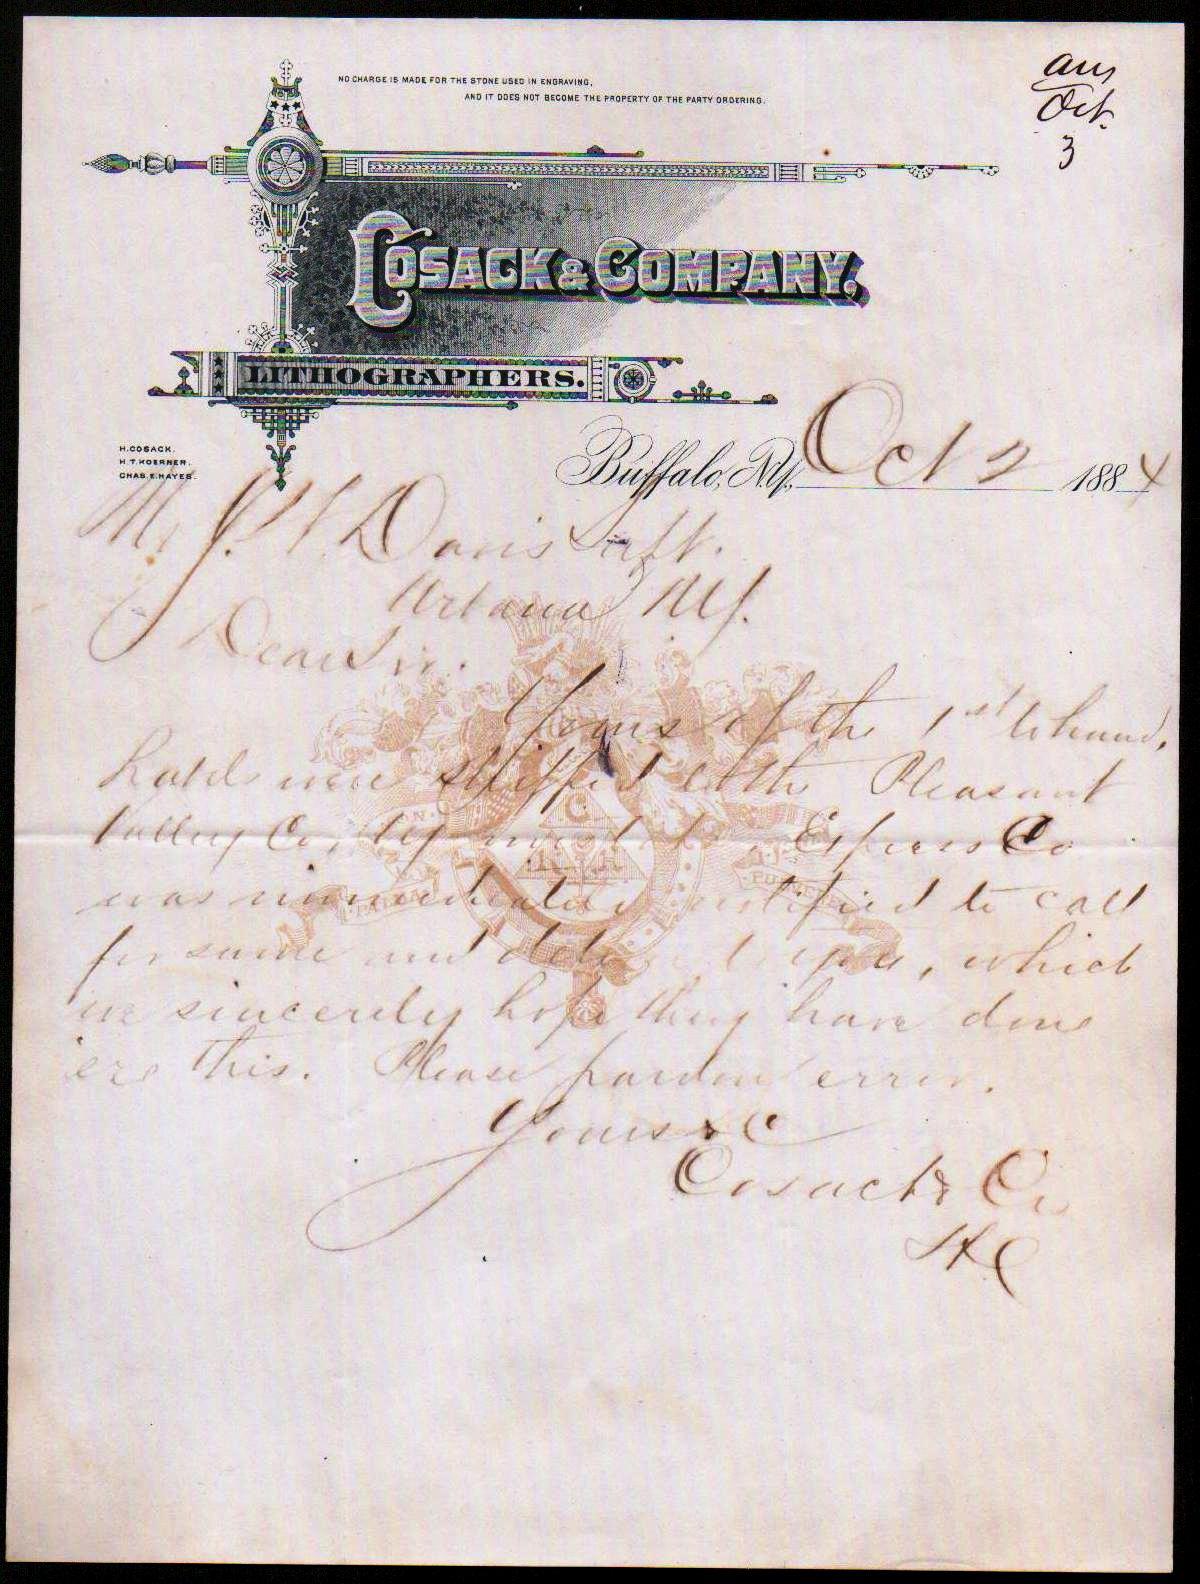 NO CHARGE IS MADE FOR THE STONE USED IN ENGRAVING,
AND IT DOES NOT BECOME THE PROPERTY OF THE PARTY ORDERING.
ans
Oct.
3
COSACK & COMPANY,
LITHOGRAPHERS.
H. COSACK.
H. T. KOERNER.
CHAS. E. HAYES.
Buffalo, N.Y., Oct 2 1884
Mr J. W. Davis
Urbana N.Y.
Dear Sir.
Yours of the 1st to hand,
were shipped to the Pleasant
Valley Co, by mistake. Express Co
was immediately notified to call
for same and deliver to you, which
we sincerely hope they have done
ere this. Please pardon error.
Yours &C
Cosack & Co
H C